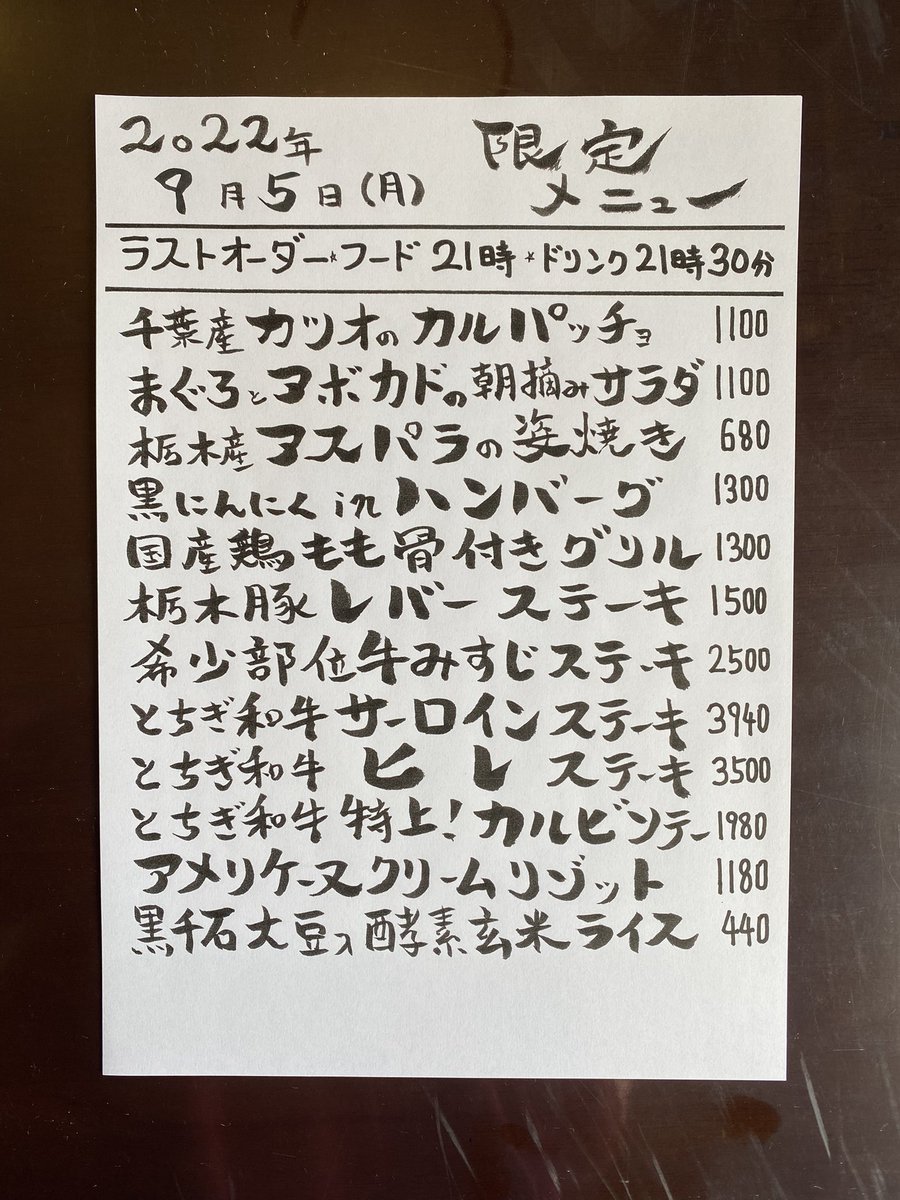 2022年 限定
9月5日(月) メニュー
ラストオーダー★フード 21時★ドリンク21時30分
千葉産 カツオのカルパッチョ 1100
まぐろとアボカドの朝摘みサラダ 1100
栃木産アスパラの姿焼き 680
黒にんにく in ハンバーグ 1300
国産鶏もも骨付きグリル 1300
栃木豚レバーステーキ 1500
希少部位牛みすじステーキ 2500
とちぎ和牛サーロインステーキ 3940
とちぎ和牛 ヒレ ステーキ 3500
とちぎ和牛特上!カルビソテー 1980
アメリケーヌクリームリゾット 1180
黒千石大豆入酵素玄米ライス 440